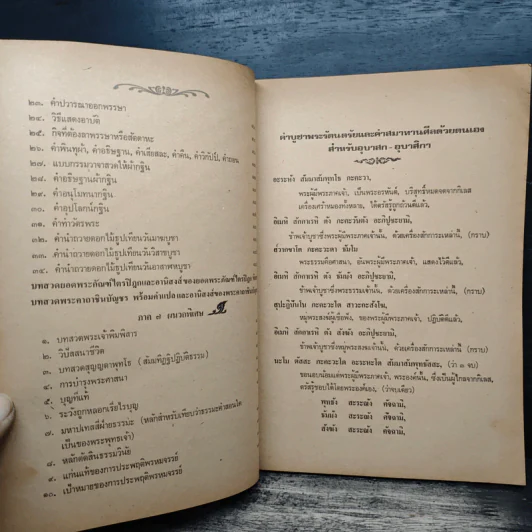 ๒๓. คำปวารณาออกพรรษา
๒๔. วิธีแสดงอาบัติ
๒๕. กิจที่ต้องลาพรรษาหรือสัตตาหะ
๒๖. คำพินทุผ้า, คำอธิษฐาน, คำเสียสละ, คำคืน, คำวิกัปป์, คำถอน
๒๗. แบบกรรมวาจาสวดให้ผ้ากฐิน
๒๘. คำอธิษฐานผ้ากฐิน
๒๙. คำอนุโมทนากฐิน
๓๐. คำอุปโลกน์กฐิน
๓๑. คำทำวัตรพระ
๓๒. คำนำถวายดอกไม้ธูปเทียนวันมาฆบูชา
๓๓. คำนำถวายดอกไม้ธูปเทียนวันวิสาขบูชา
๓๔. คำนำถวายดอกไม้ธูปเทียนวันอาสาฬหบูชา
บทสวดยอดพระกัณฑ์ไตรปิฎกและอานิสงส์ของยอดพระกัณฑ์ไตรปิฎก
บทสวดพระคาถาชินบัญชร พร้อมคำแปลและอานิสงส์ของพระคาถาชินบัญชร
ภาค ๗ ผนวกพิเศษ
๑. บทสวดพระเจ้าพิมพิสาร
๒. วิปัสสนาชีวิต
๓. บทสวดสูญญตาพุทโธ (สัมมทิฏฐิปฏิบัติธรรม)
๔. การบำรุงพระศาสนา
๕. บุญที่แท้
๖. ระวังถูกหลอกเรี่ยไรบุญ
๗. มหาปเทสฝ่ายธรรมะ (หลักสำหรับเทียบว่าธรรมะคำสอนใด
เป็นของพระพุทธเจ้า)
๘. หลักตัดสินธรรมวินัย
๙. แก่นแท้ของการประพฤติพรหมจรรย์
๑๐. เป้าหมายของการประพฤติพรหมจรรย์
คำบูชาพระรัตนตรัยและคำสมาทานศีลด้วยตนเอง
สำหรับอุบาสก - อุบาสิกา
อะระหัง สัมมาสัมพุทโธ ภะคะวา,
พระผู้มีพระภาคเจ้า, เป็นพระอรหันต์, บริสุทธิ์หมดจดจากกิเลส
เครื่องเศร้าหมองทั้งหลาย, ได้ตรัสรู้ถูกถ้วนดีแล้ว,
อิเมหิ สักกาเรหิ ตัง ภะคะวันตัง อะภิปูชะยามิ,
ข้าพเจ้าบูชาซึ่งพระผู้มีพระภาคเจ้านั้น, ด้วยเครื่องสักการะเหล่านี้, (กราบ)
สวากขาโต ภะคะวะตา ธัมโม
พระธรรมคือศาสนา, อันพระผู้มีพระภาคเจ้า, แสดงไว้ดีแล้ว,
อิเมหิ สักกาเรหิ ตัง ธัมมัง อะภิปูชะยามิ,
ข้าพเจ้าบูชาซึ่งพระธรรมเจ้านั้น, ด้วยเครื่องสักการะเหล่านี้, (กราบ)
สุปะฏิปันโน ภะคะวะโต สาวะกะสังโฆ,
หมู่พระสงฆ์ผู้เชื่อฟัง, ของพระผู้มีพระภาคเจ้า, ปฏิบัติดีแล้ว,
อิเมหิ สักกาเรหิ ตัง สังฆัง อะภิปูชะยามิ,
ข้าพเจ้าบูชาซึ่งหมู่พระสงฆ์เจ้านั้น, ด้วยเครื่องสักการะเหล่านี้, (กราบ)
นะโม ตัสสะ ภะคะวะโต อะระหะโต สัมมาสัมพุทธัสสะ, (ว่า ๓ จบ)
ขอนอบน้อมแด่พระผู้มีพระภาคเจ้า, พระองค์นั้น, ซึ่งเป็นผู้ไกลจากกิเลส,
ตรัสรู้ชอบได้โดยพระองค์เอง, (ว่าจบเดียว)
พุทธัง สะระณัง คัจฉามิ,
ธัมมัง สะระณัง คัจฉามิ,
สังฆัง สะระณัง คัจฉามิ,